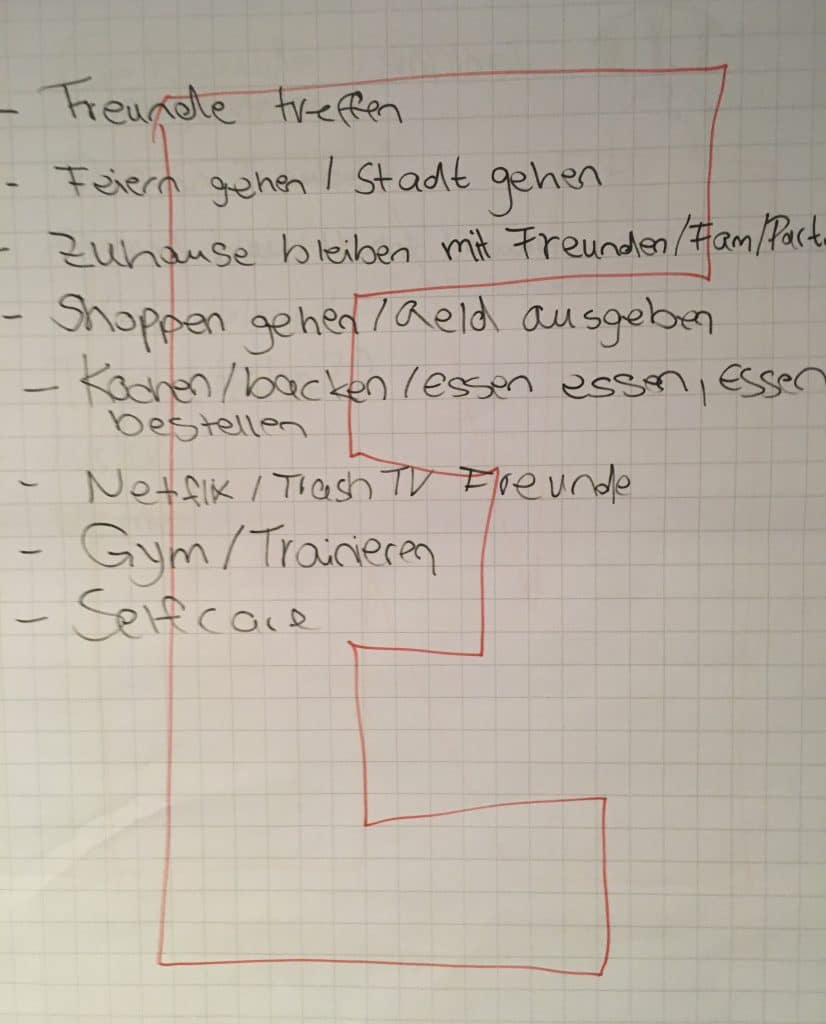 - Freunde treffen
- Feiern gehen / Stadt gehen
- Zuhause bleiben mit Freunden/Fam/Part.
- Shoppen gehen / Geld ausgeben
- Kochen/backen/essen essen, essen
bestellen
- Netflix / Trash TV Freunde
- Gym/Trainieren
- Selfcare